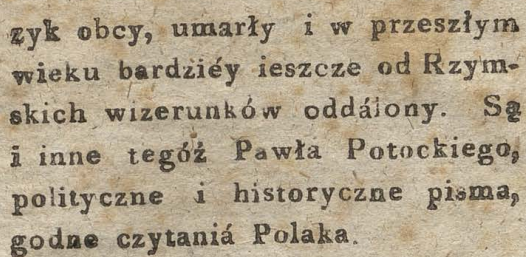 zyk obcy, umarły i w przeszłym
wieku bardziéy ieszcze od Rzym-
skich wizerunków oddálony. Są
i inne tegóż Pawła Potockiego,
polityczne i historyczne pisma,
godne czytaniá Polaka.